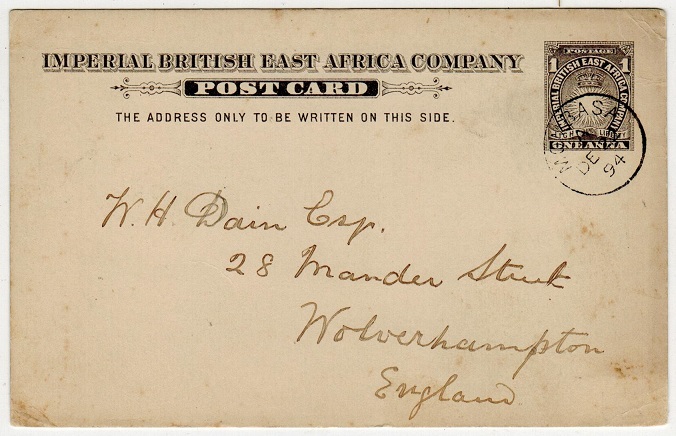 IMPERIAL BRITISH EAST AFRICA COMPANY
POST CARD
THE ADDRESS ONLY TO BE WRITTEN ON THIS SIDE.
POSTAGE
1 1
IMPERIAL BRITISH EAST AFRICA COMPANY
ONE ANNA
MOMBASA
DE
94
W. H. Dain Esq.
28 Mander Street
Wolverhampton
England